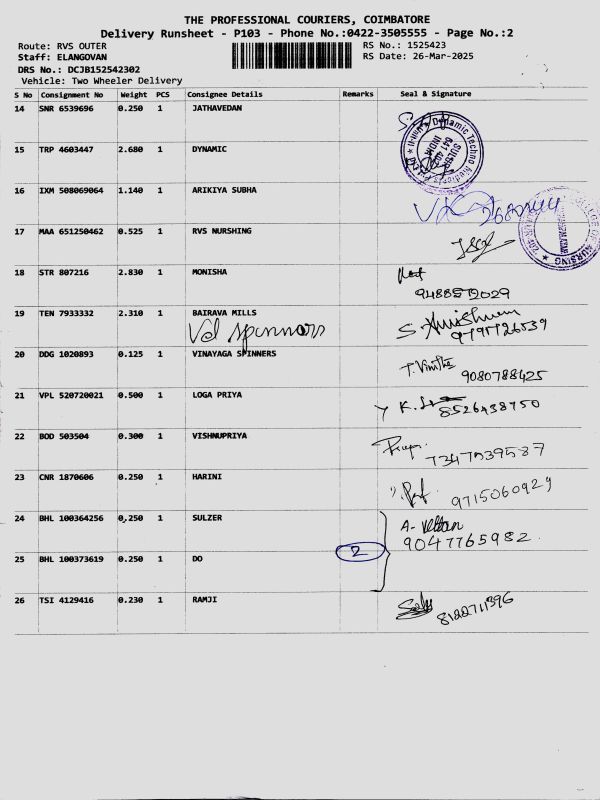 THE PROFESSIONAL COURIERS, COIMBATORE
Delivery Runsheet - P103 - Phone No.:0422-3505555 - Page No.:2
Route: RVS OUTER RS No.: 1525423
Staff: ELANGOVAN RS Date: 26-Mar-2025
DRS No.: DCJB152542302
Vehicle: Two Wheeler Delivery
S No Consignment No Weight PCS Consignee Details Remarks Seal & Signature
14 SNR 6539696 0.250 1 JATHAVEDAN
15 TRP 4603447 2.680 1 DYNAMIC
16 IXM 508069064 1.140 1 ARIKIYA SUBHA
17 MAA 651250462 0.525 1 RVS NURSHING
18 STR 807216 2.830 1 MONISHA
9488572029
19 TEN 7933332 2.310 1 BAIRAVA MILLS
Vel spinners
9797726539
20 DDG 1020893 0.125 1 VINAYAGA SPINNERS
T. Vinitha
9080788425
21 VPL 520720021 0.500 1 LOGA PRIYA
8526438750
22 BOD 503504 0.300 1 VISHNUPRIYA
7347039587
23 CNR 1870606 0.250 1 HARINI
9715060929
24 BHL 100364256 0,250 1 SULZER
A- Vettan
9047765982
25 BHL 100373619 0.250 1 DO 2
26 TSI 4129416 0.230 1 RAMJI
8122711396